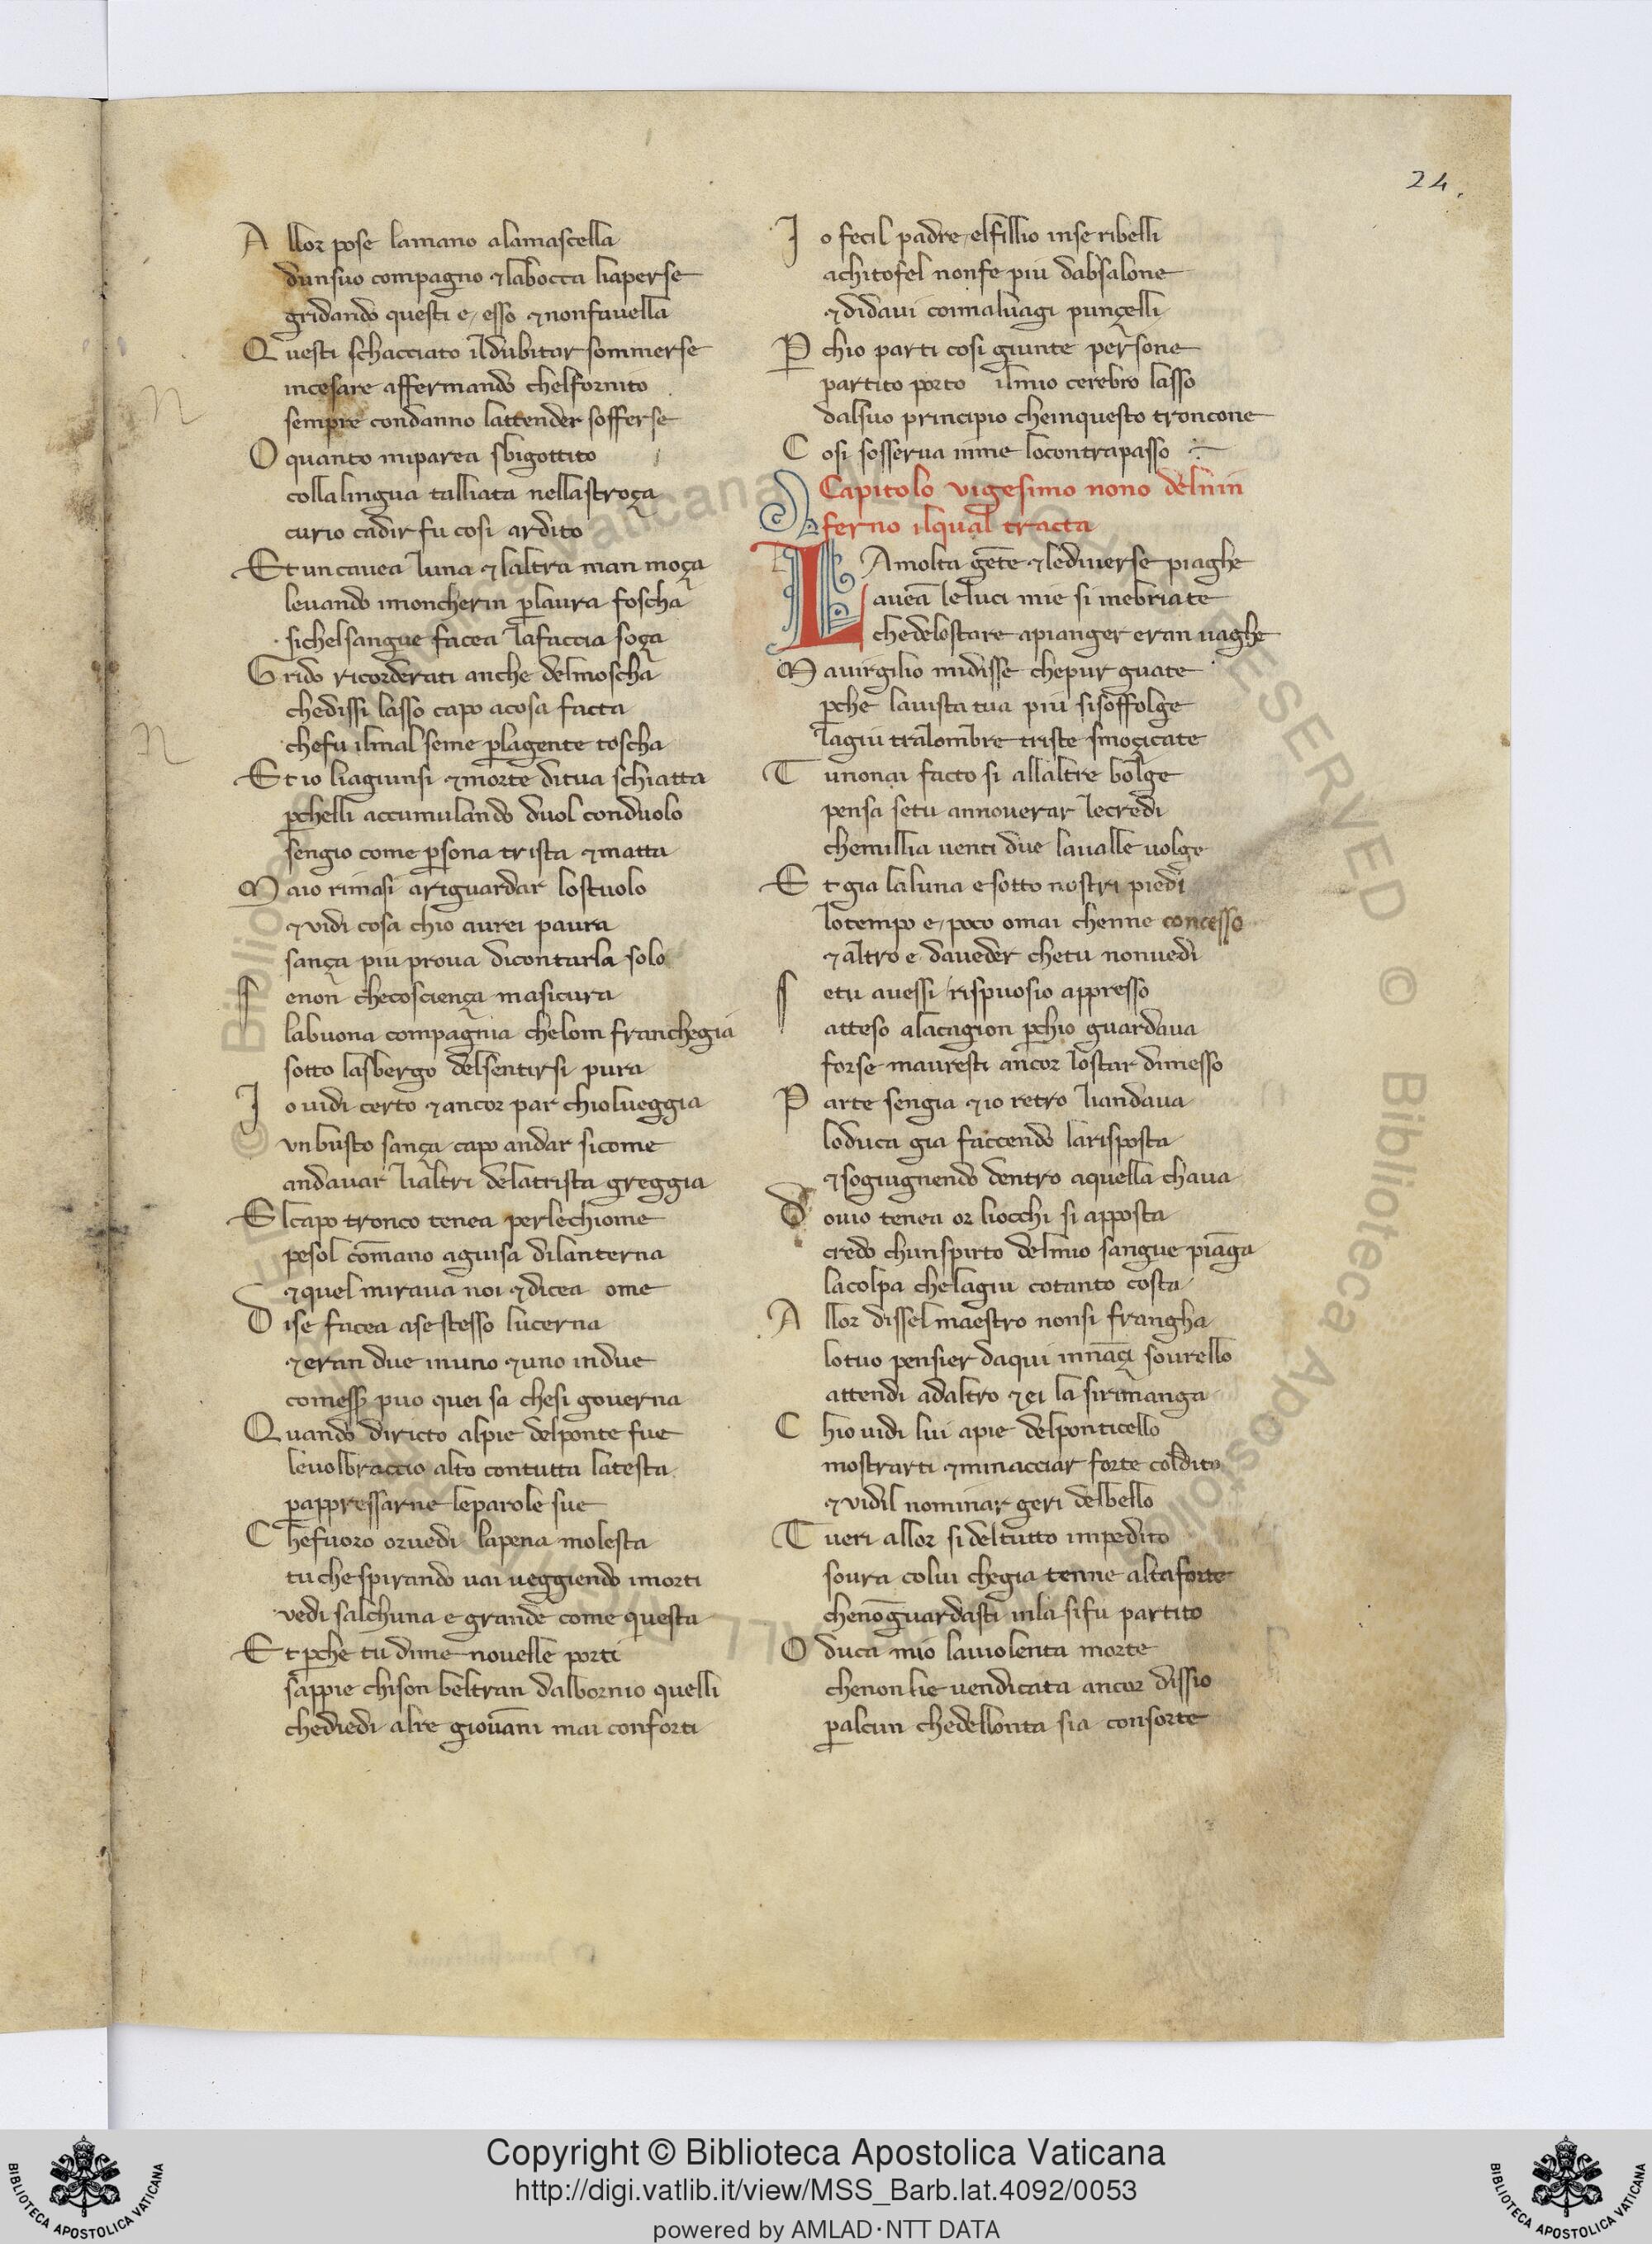 24.
Allor pose lamano alamascella
dunsuo compagno ⁊ labocca liaperse
gridando questi e esso ⁊ nonfauella
Questi schacciato ildubitar sommerse
incesare affermando chelfornito
sempre condanno lattender sofferse
O quanto miparea sbigottito
collalingua talliata nellastroça
curio cadir fu cosi ardito
Et un cauea luna ⁊ laltra man moça
leuando imoncherin plaura foscha
sichelsangue facea lafaccia soça
Grido ricorderati anche delmoscha
chedissi lasso capo acosa facta
chefu ilmal seme plagente toscha
Et io liagiunsi ⁊ morte ditua schiatta
pchelli accumulando duol conduolo
sengio come psona trista ⁊ matta
Maio rimasi ariguardar lostuolo
⁊ vidi cosa chio aurei paura
sança piu proua dicontarla solo
Senon checosciença masicura
labuona compagnia chelom franchegia
sotto lasbergo delsentirsi pura
Io uidi certo ⁊ ancor par chiolueggia
vnbusto sança capo andar sicome
andauar lialtri delatrista greggia
Elcapo tronco tenea perlechiome
pesol cōmano aguisa dilanterna
⁊ quel miraua noi ⁊ dicea ome
Dise facea asestesso lucerna
⁊ eran due inuno ⁊ uno indue
comessp puo quei sa chesi gouerna
Quando diricto alpie delponte fue
leuolbraccio alto contutta latesta
pappressarne leparole sue
Chefuoro oruedi lapena molesta
tu che spirando uai ueggiendo imorti
vedi salchuna e grande come questa
Et pche tu dime nouelle porti
sappie chison beltran dalbornio quelli
chediedi alre giouāni mai conforti
Io fecil padre elfillio inse ribelli
achitofel nonfe piu dabsalone
⁊ didaui coimaluagi punçelli
Pchio parti cosi giunte persone
partito porto ilmio cerebro lasso
dalsuo principio cheinquesto troncone
Cosi sosserua inme locontrapasso
Capitolo vigesimo nono delnin
ferno ilqual tracta
LAmolta gēte ⁊ lediuerse piaghe
aueā leluci mie si inebriate
chedelostare apianger eran uaghe
Mauirgilio midisse chepur guate
pche lauista tua piu sisoffolge
lagiu tralombre triste smoçicate
Tu nonai facto si allaltre bolge
pensa setu annouerar lecredi
chemillia uenti due laualle uolge
Et gia laluna e sotto nostri piedi
lotempo e poco omai chenne concesso
⁊ altro e daueder chetu nonuedi
Setu auessi rispuosio appresso
atteso alacagion pchio guardaua
forse mauresti ancor lostar dimesso
Parte sengia ⁊ io retro liandaua
loduca gia faccendo larisposta
⁊ sogiugnendo dentro aquella chaua
Douio tenea or liocchi si apposta
credo chunspirto delmio sangue piāga
lacolpa chelagiu cotanto costa
Allor dissel maestro nonsi frangha
lotuo pensier daqui innāçi sourello
attendi adaltro ⁊ ei la sirimanga
Chio uidi lui apie delponticello
mostrarti ⁊ minacciar forte coldito
⁊ vidil nominar geri delbello
Tu eri allor si deltutto impedito
soura colui chegia tenne altaforte
chenōguardasti inla sifu partito
O duca mio lauiolenta morte
chenonlie uendicata ancor dissio
palcun chedellonta sia consorte
Copyright © Biblioteca Apostolica Vaticana
http://digi.vatlib.it/view/MSS_Barb.lat.4092/0053
powered by AMLAD·NTT DATA
BIBLIOTECA APOSTOLICA VATICANA
BIBLIOTECA APOSTOLICA VATICANA